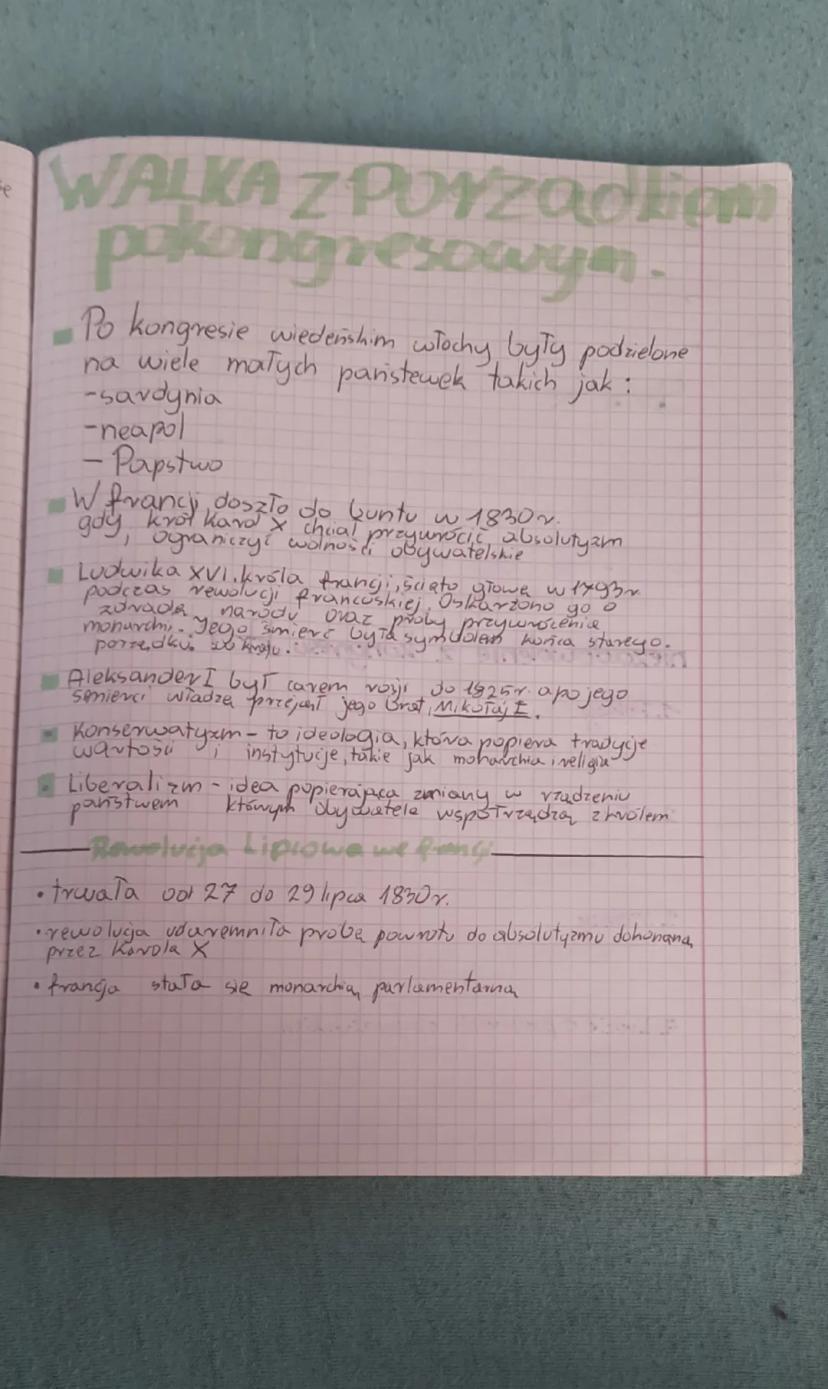 WALKA Z PORZĄDKiem
pokongresowym.
Po kongresie wiedeńskim włochy były podzielone
na wiele małych państewek takich jak :
-sardynia
-neapol
- Papstwo
W francji doszło do buntu w 1830r.
gdy król karol X chciał przywrócić absolutyzm
, ograniczyć wolności obywatelskie
Ludwika XVI. króla francji, ścięto głowę w 1793r
podczas rewolucji francuskiej. Oskarżono go o
zdradę narodu oraz próby przywrócenia
monarchi. Jego śmierć była symbolem końca starego.
porządku w kraju.
Aleksander I był carem rosji do 1825r. a po jego
śmierci władzę przejął jego brat, Mikołaj I.
Konserwatyzm - to ideologia, która popiera tradycje
wartości i instytucje, takie jak monarchia i religia
Liberalizm - idea popierająca zmiany w rządzeniu
państwem którym obywatele współrządzą z królem
Rewolucja Lipcowa we francji
• trwała od 27 do 29 lipca 1830r.
• rewolucja udaremniła próbę powrotu do absolutyzmu dokonaną
przez Karola X
• francja stała się monarchią parlamentarną